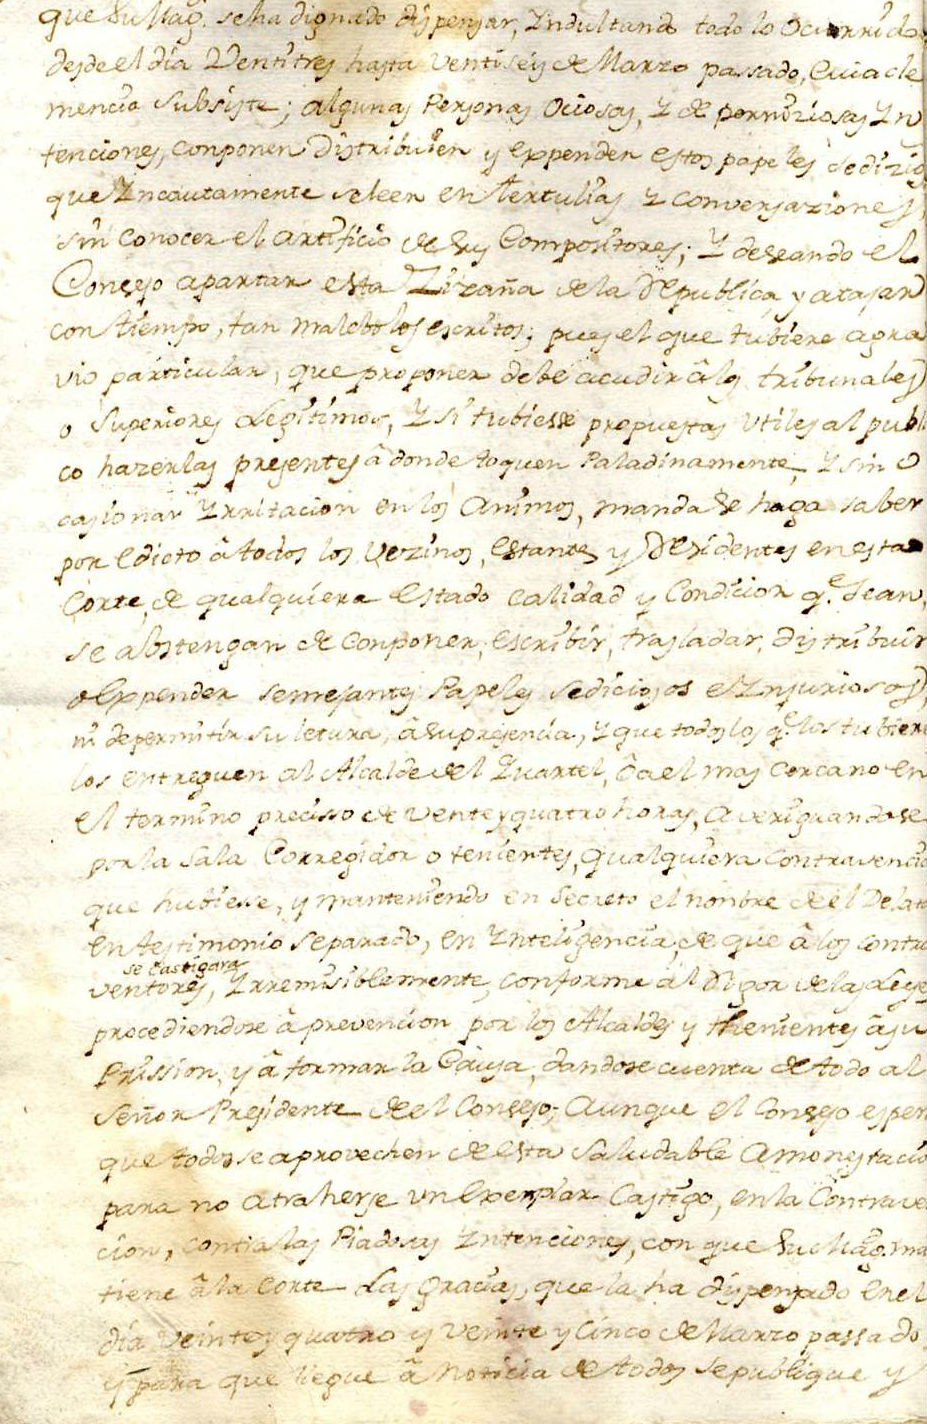 que Su Mag. se ha dignado dispensar, Yndultando todo lo Ocurrido
desde el día Ventitres hasta ventiseis de Marzo passado, Cuia cle
mencia subsiste; algunas Personas Ociosas, Y de perniziosas Yn
tenciones, conponen Distribuien y expenden estos papeles sedizios
que Yncautamente se leen en tertulias Y conversaziones,
sin conocer el artificio de sus Compositores; Y deseando el
Consejo apartar esta Zizaña de la Republica, y atajar
con tiempo, tan malebolos escritos; pues el que tubiere agra
vio particular, que proponer debe acudir â los tribunales
o Superiores Legitimos, Y si tubiesse propuestas Utiles al publi
co hazerlas presentes â donde toquen Paladinamente, Y sin o
casionar Yrritacion en los Animos, manda se haga saber
por Edicto â todos los Vezinos, Estantes y Residentes en esta
Corte, de qualquiera Estado Calidad y Condicion q.e Sean,
se abstengan de Conponer, escribir, trasladar, Distribuir
o Expender semejantes Papeles Sediciosos e Ynjuriosos,
ni de permitir su letura, â su presencia, Y que todos los q.e los tubiere
los entreguen al Alcalde del Quartel, ô a el mas cercano en
el termino precisso de Vente y quatro horas, averiguandose
por la Sala Corregidor o tenientes, qualquiera Contravencio
que hubiesse, y manteniendo en Secreto el nombre de el Delato
en testimonio separado, en Ynteligencia, de que â los Contra
se Castigara
ventores, Yrremisiblemente, conforme al Rigor de las Leye
procediendose â prevencion por los Alcaldes y thenientes â su
Prission, y â formar la Causa, dandose cuenta de todo al
Señor Presidente de el Consejo; Aunque el Consejo esper
que todos se aprovechen de esta Saludable Amonestacio
para no atraherse un Exemplar Castigo, en la Contrave
cion, contra las Piadosas Yntenciones, con que Su Mag. ma
tiene â la Corte Las gracias, que la ha dispensado en el
día Veinte y quatro y Veinte y Cinco de Marzo passado
y para que llegue â Noticia de todos se publique y